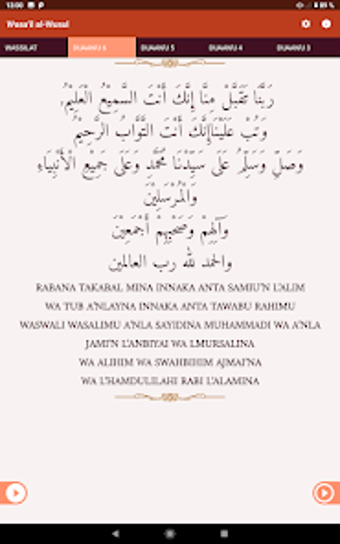 13:00
Wasa'il al-Wusul
WASSILAT
DUAWU 6
DUAWU 5
DUAWU 4
DUAWU 3
رَبَّنَا تَقَبَّلْ مِنَّا إِنَّكَ أَنْتَ السَّمِيْعُ الْعَلِيْمُ،
وَتُبْ عَلَيْنَاإِنَّكَ أَنْتَ التَّوَّابُ الرَّحِيْمُ
وَصَلِّ وَسَلِّمْ عَلَى سَيِّدِنَا مُحَمَّدٍ وَعَلَى جَمِيْعِ الْأَنْبِيَاءِ
وَالْمُرْسَلِيْنَ
وَآلِهِمْ وَصَحْبِهِمْ أَجْمَعِيْنَ
والحمد لله رب العالمين
RABANA TAKABAL MINA INNAKA ANTA SAMIU'N L'ALIM
WA TUB A'NLAYNA INNAKA ANTA TAWABU RAHIMU
WASWALI WASALIMU A'NLA SAYIDINA MUHAMMADI WA A'NLA
JAMI'N L'ANBIYAI WA LMURSALINA
WA ALIHIM WA SWAHBIHIM AJMAI'NA
WA L'HAMDULILAHI RABI L'ALAMINA